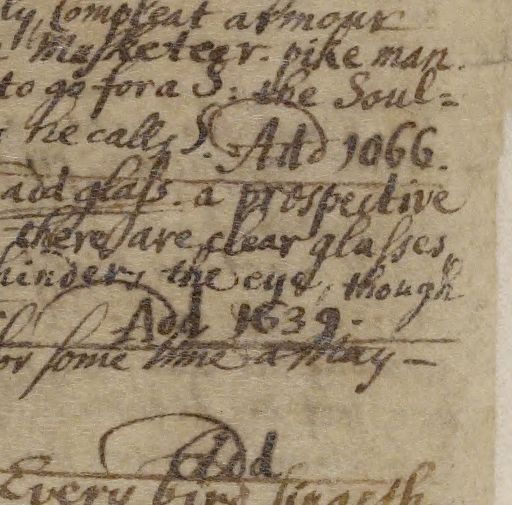 ly compleat armour
Musketeer. pike man.
to go for a S: the Soul=
he calls S. Add 1066.
add glass. a prospective
there are clear glasses,
hinders the eye, though
Add 1639.
or some time a May-
Add
Every bird singeth